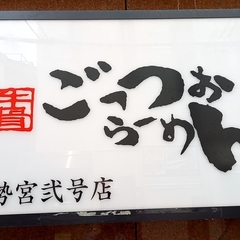 ごっつお
らーめん
勢宮弐号店